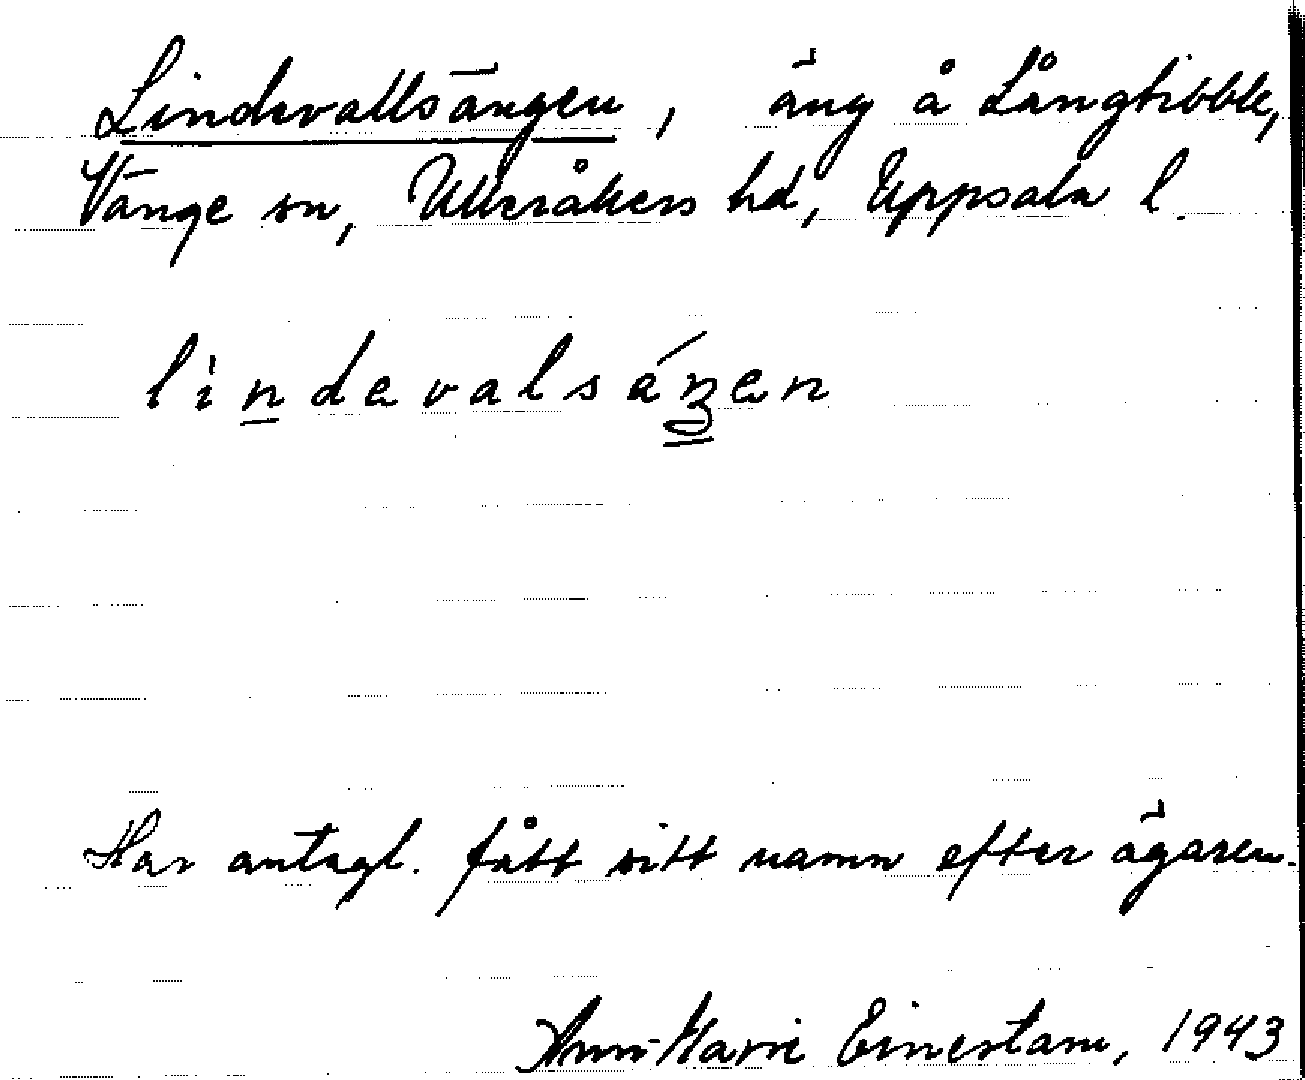 Lindevallsängen, äng å Långtibble,
Vänge sn, Ulleråkers hd, Uppsala l.
lindevalséŋen
Har antagl. fått sitt namn efter ägaren.
Ann-Marie Einestam, 1943